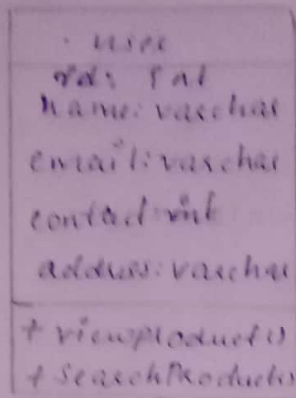 user
id: Int
name: varchar
email: varchar
contact: int
address: varchar
+ viewproducts()
+ searchProducts()